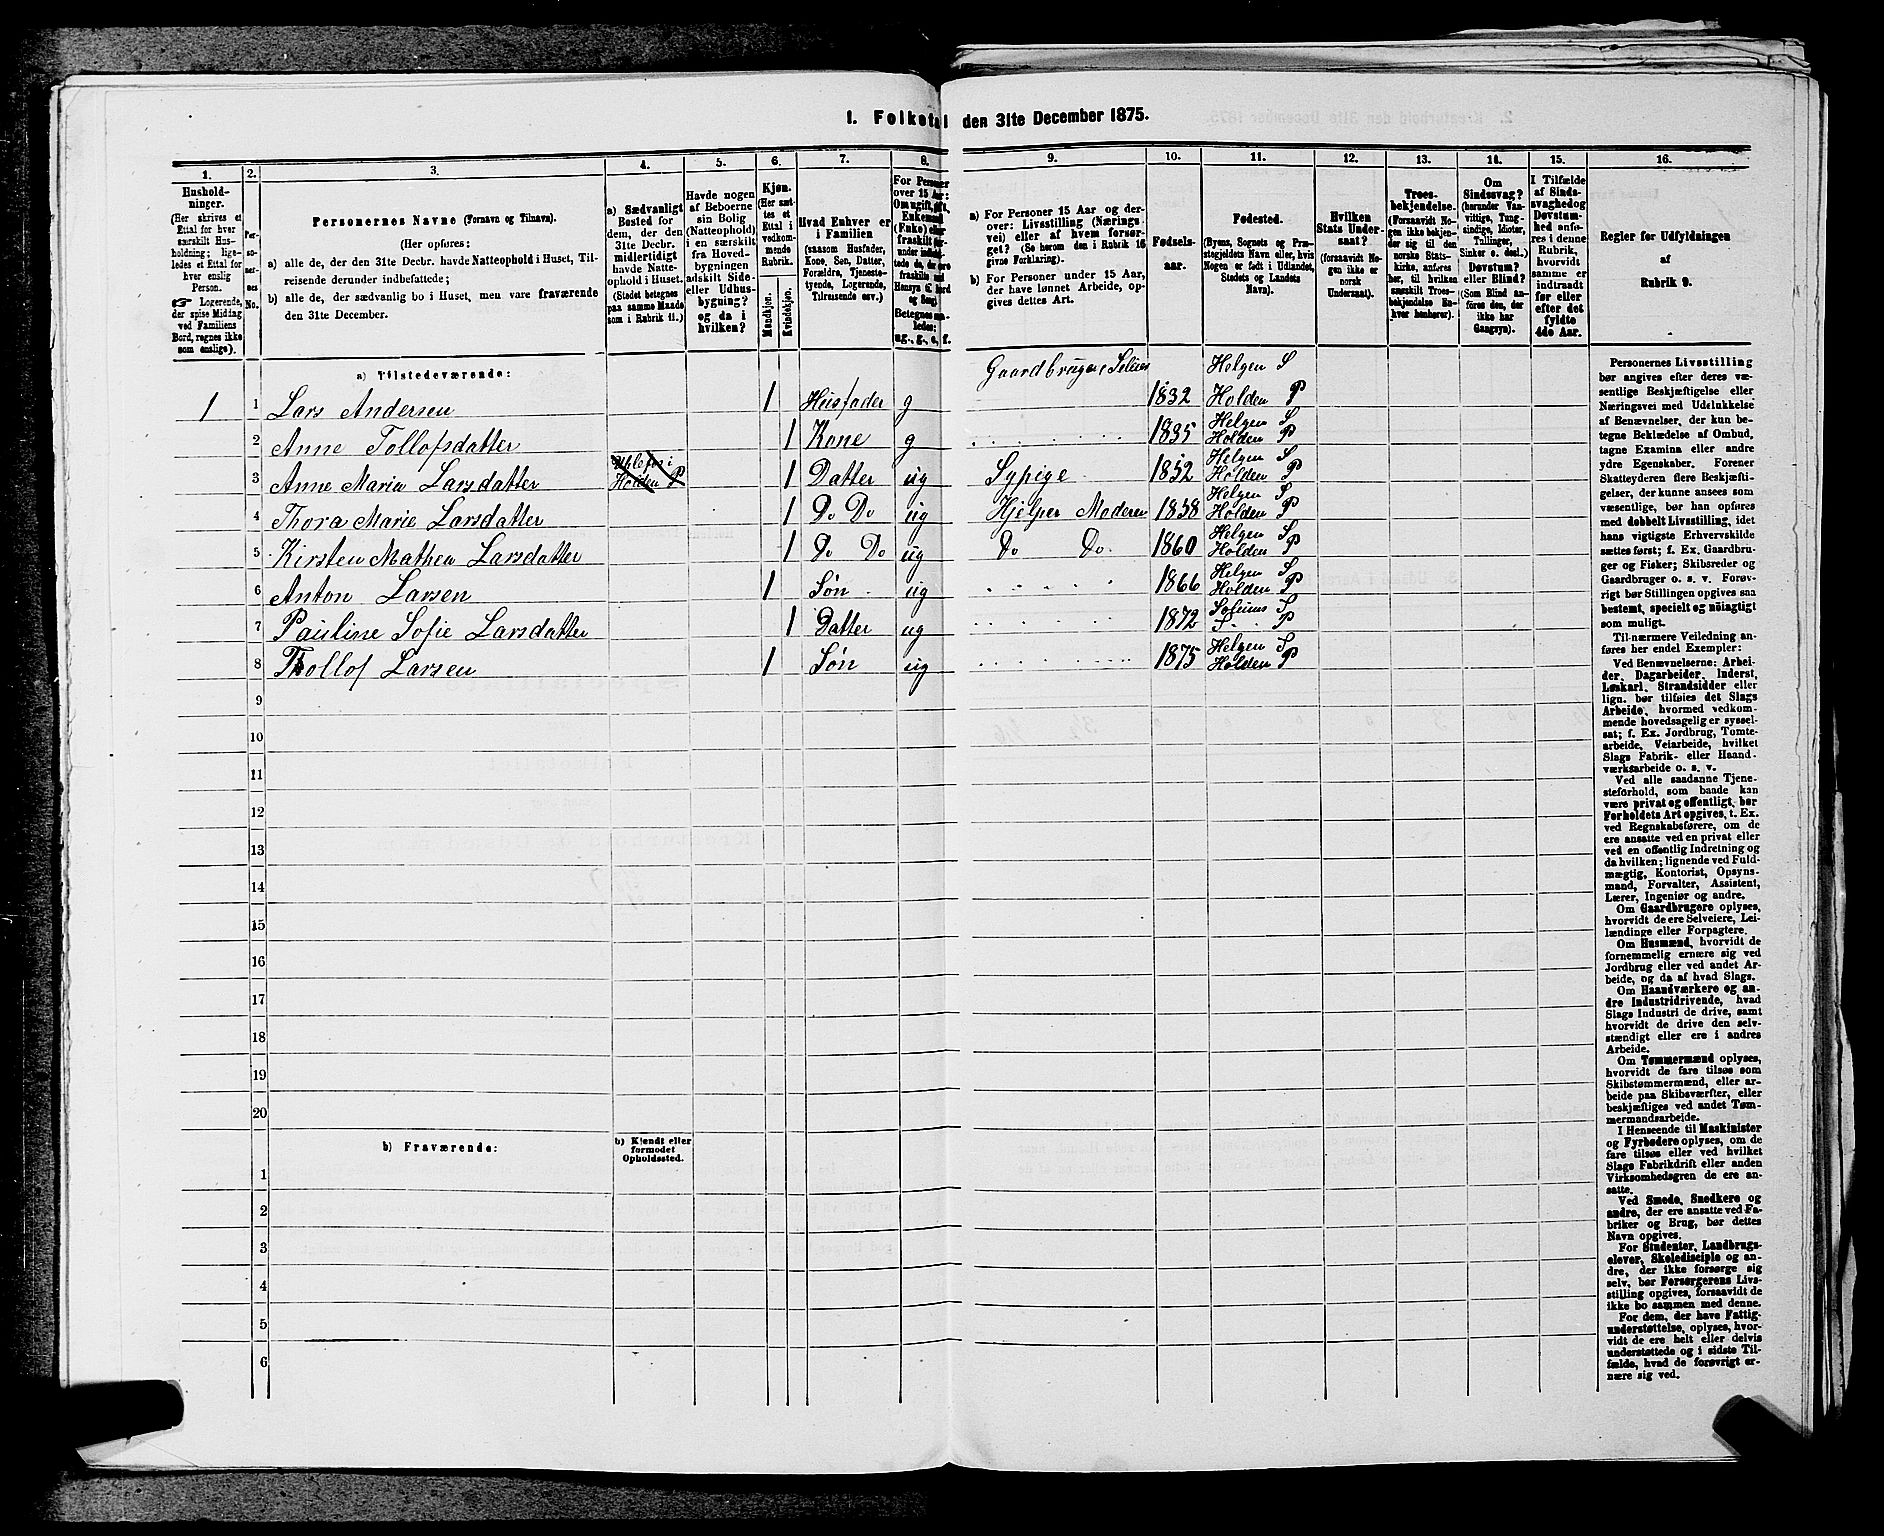 I. Folketal den 31te December 1875.
1.
2.
3.
4.
5.
6.
7.
8.
9.
10.
11.
12.
13.
14.
15.
16.
Hushold-
ninger.
(Her skrives et
Ettal for hver
særskilt Hus-
holdning; lige-
ledes et Ettal for
hver enslig
Person.
☞ Logerende,
der spise Middag
ved Familiens
Bord, regnes ikke
som enslige).
Per-
so-
ner-
nes
No.
Personernes Navne (Fornavn og Tilnavn).
(Her opføres:
a) alle de, der den 31te Decbr. havde Natteophold i Huset, Til-
reisende derunder indbefattede;
b) alle de, der sædvanlig bo i Huset, men vare fraværende
den 31te December.
a) Sædvanligt
Bosted for
dem, der den
31te Decbr.
midlertidigt
havde Natte-
ophold i Huset.
(Stedet betegnes
paa samme Maade
som i Rubrik 11.)
Havde nogen
af Beboerne
sin Bolig
(Natteophold)
i en særskilt
fra Hoved-
bygningen
adskilt Side-
eller Udhus-
bygning?
og da i
hvilken?
Kjøn.
(Her sæt-
tes et
Ettal i
vedkom-
mende
Rubrik.
Mandkjøn.
Kvindekjøn.
Hvad Enhver er
i Familien
(saasom Husfader,
Kone, Søn, Datter,
Forældre, Tjeneste-
tyende, Logerende,
Tilreisende osv.)
For Personer
over 15 Aar:
a) For Personer 15 Aar og der-
over: Livsstilling (Nærings-
vei) eller af hvem forsør-
get? (Se herom den i Rubrik 16
givne Forklaring).
b) For Personer under 15 Aar,
der have lønnet Arbeide, op-
gives dettes Art.
Fødsels-
aar.
Fødested.
(Byens, Sognets og Præ-
stegjeldets Navn eller, hvis
Nogen er født i Udlandet,
Stedets og Landets
Navn).
Hvilken
Stats Under-
saat?
(forsaavidt No-
gen ikke er
norsk
Undersaat).
Troes-
bekjendelse.
(Forsaavidt No-
gen ikke bekjen-
der sig til den
norske Stats-
kirke, anføres
her, til hvilken
særskilt Troes-
bekjendelse En-
hver henhører).
Om
Sindssvag?
(herunder Van-
vittige, Tung-
sindige, Idioter,
Tullinger,
Sinker o. desl.).
Døvstum?
eller Blind?
(Som Blind an-
føres den, der
ikke har
Gangsyn).
I Tilfælde
af Sinds-
svaghed og
Døvstum-
hed anfø-
res i denne
Rubrik,
hvorvidt
samme er
indtraadt
før eller
efter det
fyldte
4de Aar.
Regler for Udfyldningen
af
Rubrik 9.
a) Tilstedeværende:
1 1 Lars Andersen 1 Husfader g Gaardbruger, Seleier 1832 Helgen S Holden P
2 Anne Tollofsdatter 1 Kone g 1835 Helgen S Holden P
3 Anne Maria Larsdatter Holden P 1 Datter ug Sypige 1852 Helgen S Holden P
4 Thora Marie Larsdatter 1 Do Do ug Hjelper Moderen 1858 Helgen S Holden P
5 Kirsten Mathea Larsdatter 1 Do Do ug Do Do 1860 Helgen S Holden P
6 Anton Larsen 1 Søn ug 1866 Helgen S Holden P
7 Pauline Sofie Larsdatter 1 Datter ug 1872 Solums S S. P
8 Thollof Larsen 1 Søn ug 1875 Helgen S Holden P
9
10
11
12
13
14
15
16
17
18
19
20
b) Fraværende:
b) Kjendt eller
formodet
Opholdssted.
1
2
3
4
5
6
Personernes Livsstilling
bør angives efter deres væ-
sentlige Beskjæftigelse eller
Næringsvei med Udelukkelse
af Benævnelser, der kun be-
tegne Beklædelse af Ombud,
tagne Examina eller andre
ydre Egenskaber. Forener
Skatteyderen flere Beskjæfti-
gelser, der kunne ansees som
væsentlige, bør han opføres
med dobbelt Livsstilling, idet
hans vigtigste Erhvervskilde
sættes først; f. Ex. Gaardbru-
ger og Fisker; Skibsreder og
Gaardbruger o. s. v. Forøv-
rigt bør Stillingen opgives saa
bestemt, specielt og nøiagtigt
som muligt.
Til nærmere Veiledning an-
føres her endel Exempler:
Ved Benævnelserne: Arbei-
der, Dagarbeider, Inderst,
Løskarl, Strandsidder eller
lign. bør tilføies det Slags
Arbeide, hvormed vedkom-
mende hovedsagelig er syssel-
sat; f. Ex. Jordbrug, Tomte-
arbeide, Veiarbeide, hvilket
Slags Fabrik- eller Haand-
værksarbeide o. s. v.
Ved alle saadanne Tjene-
steforhold, som baade kan
være privat og offentligt, bør
Forholdets Art opgives, t. Ex.
ved Regnskabsførere, om de
ere ansatte ved en privat eller
ved en offentlig Indretning og
da hvilken; lignende ved Fuld-
mægtig, Kontorist, Opsyns-
mand, Forvalter, Assistent,
Lærer, Ingeniør og andre.
Om Gaardbrugere oplyses,
hvorvidt de ere Selveiere, Lei-
lændinge eller Forpagtere.
Om Husmænd, hvorvidt de
fornemmelig ernære sig ved
Jordbrug eller ved andet Ar-
beide, og da af hvad Slags.
Om Haandværkere og an-
dre Industridrivende, hvad
Slags Industri de drive, samt
hvorvidt de drive den selv-
stændigt eller ere i andres
Arbeide.
Om Tømmermænd oplyses,
hvorvidt de fare tilsøs som
Skibstømmermænd, eller ar-
beide paa Skibsværfter, eller
beskjæftiges ved andet Tøm-
mermandsarbeide.
I Henseende til Maskinister
og Fyrbødere oplyses, om de
fare tilsøs eller ved hvilket
Slags Fabrikdrift eller anden
Virksomhedsgren de ere an-
satte.
Ved Smede, Snedkere og
andre, der ere ansatte ved Fa-
briker og Brug, bør dettes
Navn opgives.
For Studenter, Landbrugs-
elever, Skoledisciple og an-
dre, der ikke forsørge sig
selv, bør Forsørgerens Livs-
stilling opgives, forsaavidt de
ikke bo sammen med denne.
For dem, der have Fattig-
understøttelse, oplyses, hvor-
vidt de ere helt eller delvis
understøttede og i sidste Til-
fælde, hvad de forøvrigt er-
nære sig ved.